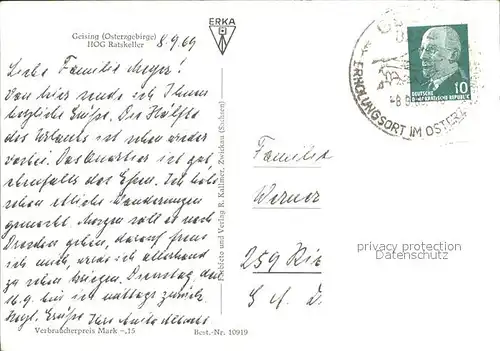 Geising (Osterzgebirge)
HOG Ratskeller
8.9.69
ERKA
Liebe Familie Meyer!
Von hier sende ich Ihnen
herzliche Grüße. Die Hälfte
des Urlaubs ist schon wieder
vorbei. Das Quartier ist gut,
ebenfalls das Essen. Ich habe
schon etliche Wanderungen
gemacht. Morgen soll es nach
Dresden gehen, darauf freue
ich mich, werde ich allerhand
zu sehen kriegen. Dienstag den
16.9. bin ich mittags zurück.
Herzl. Grüße Ihre Anita
Verbraucherpreis Mark -.15
Best.-Nr. 10919
Fachfoto und Verlag R. Kallmer, Zwickau (Sachsen)
10
DEUTSCHE
DEMOKRATISCHE REPUBLIK
ERHOLUNGSORT IM OSTERZ
Familie
Werner
259 Rib
privacy protection
Datenschutz